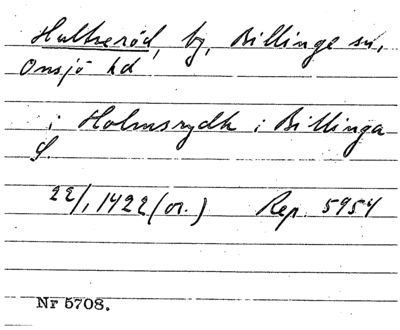 Hultseröd, by, Billinge sn,
Onsjö hd
i Holmsrydh i Billinga
S.
22/1 1422 (or.) Rep. 5954
Nr 5708.